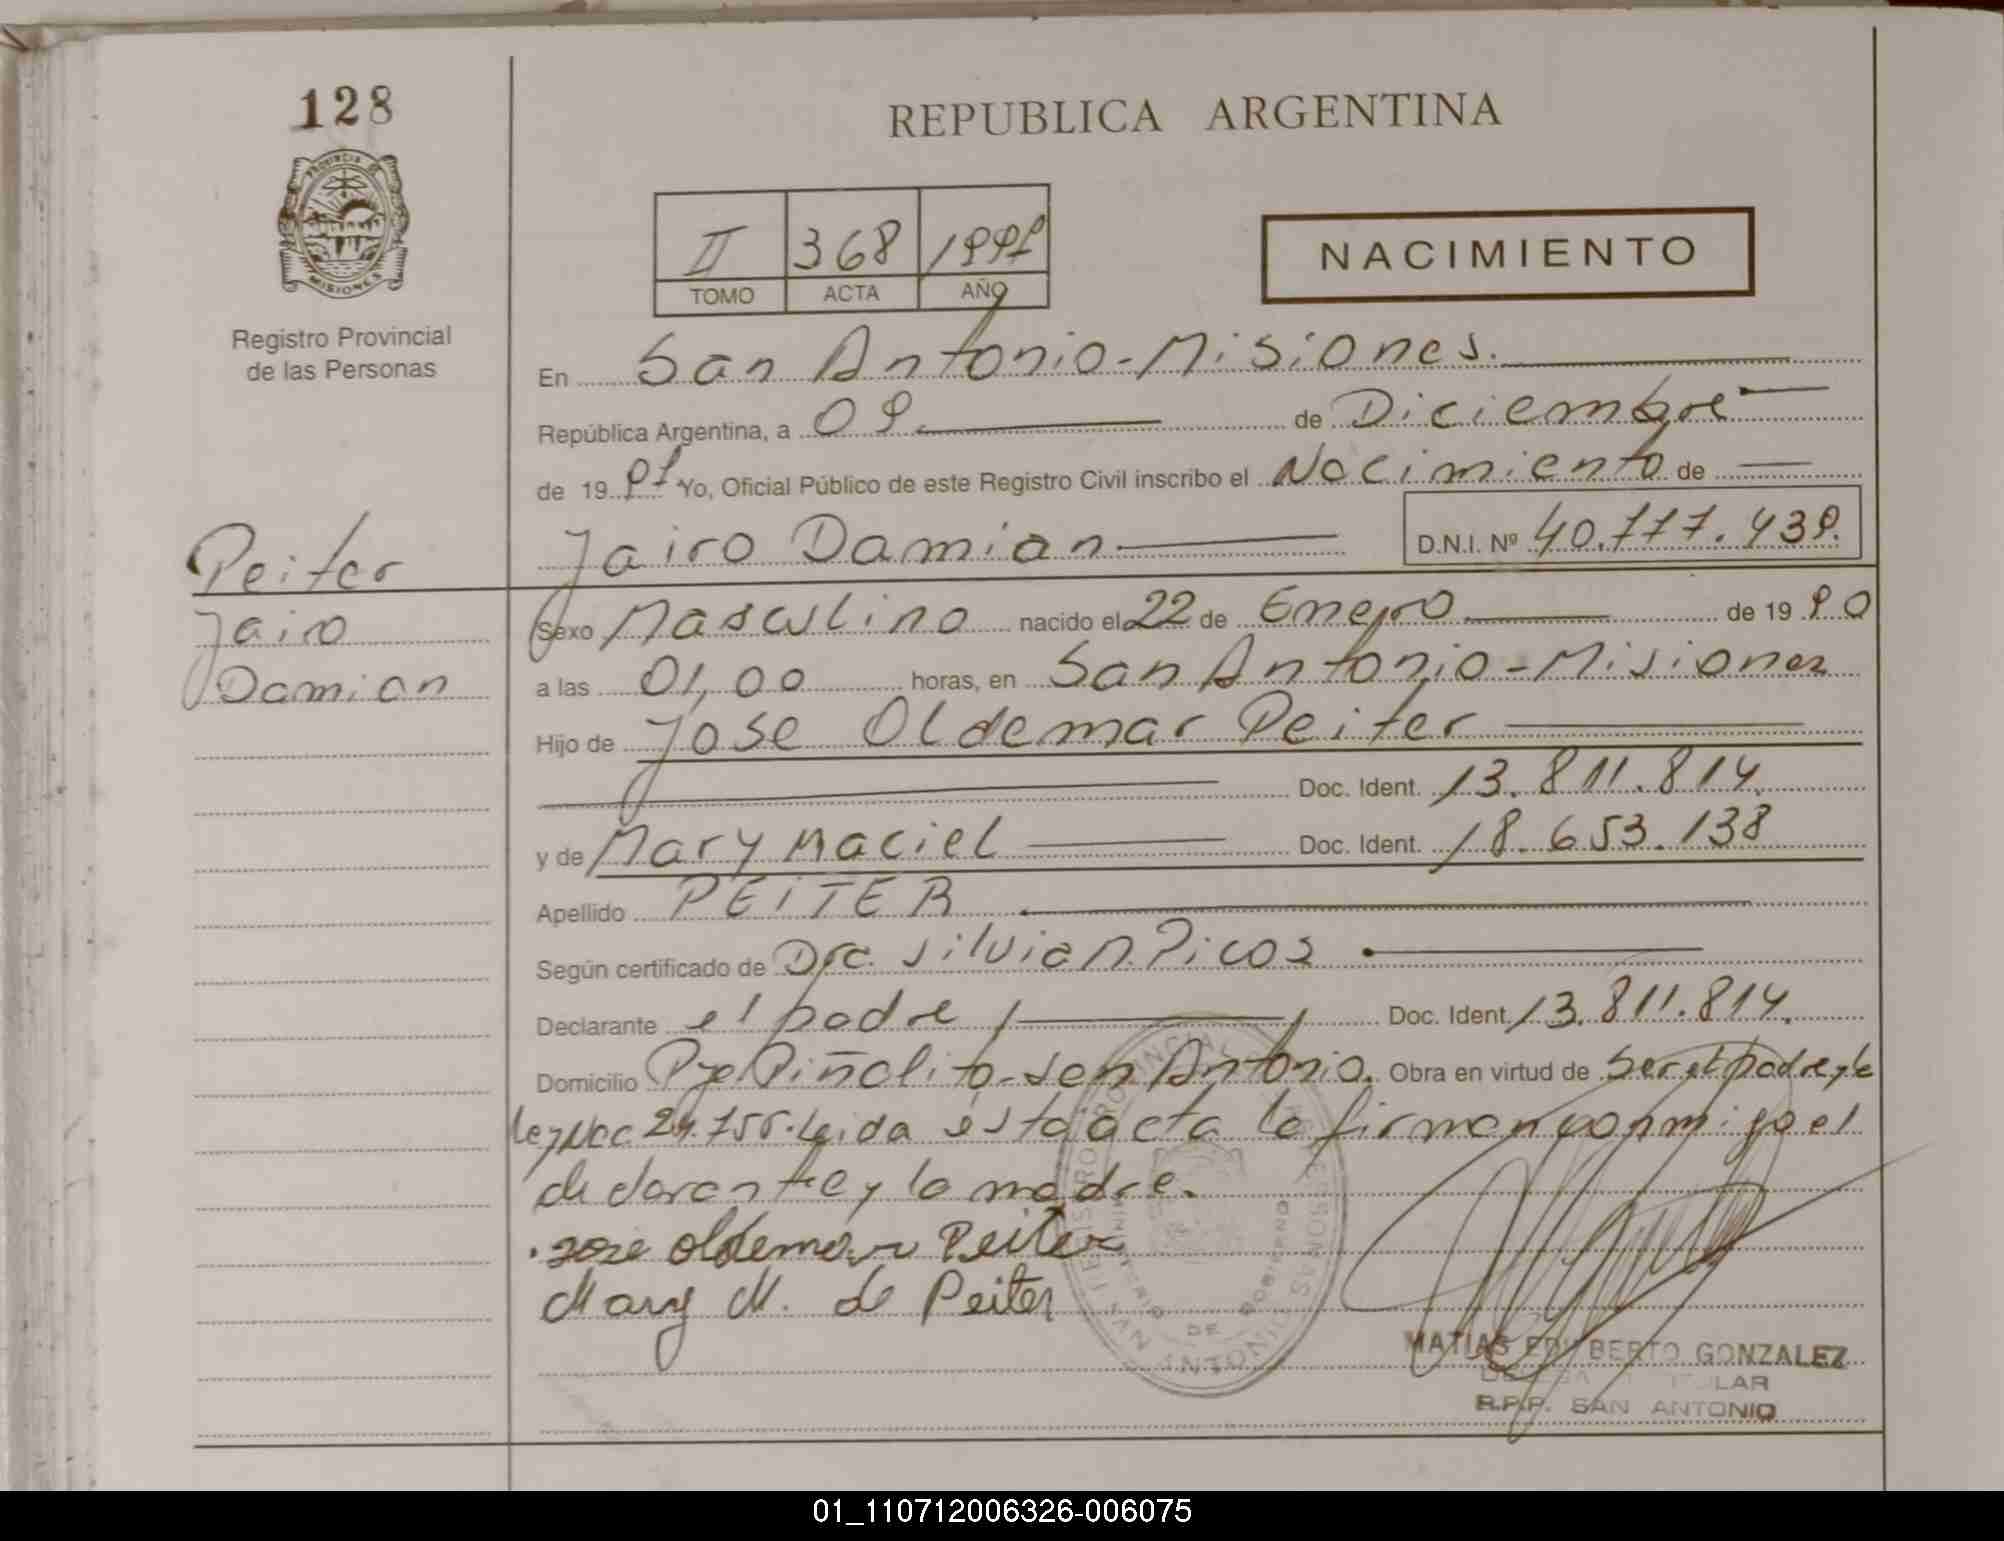 128
REPUBLICA ARGENTINA
PROVINCIA DE MISIONES
II 368 1997
TOMO ACTA AÑO
NACIMIENTO
Registro Provincial
de las Personas
En San Antonio-Misiones.
República Argentina, a 09 de Diciembre
de 1997 Yo, Oficial Público de este Registro Civil inscribo el Nacimiento de
Peiter
Jairo Damian D.N.I. Nº 40.777.439.
Jairo
Damian
Sexo Masculino nacido el 22 de Enero de 1990
a las 01,00 horas, en San Antonio-Misiones
Hijo de Jose Oldemar Peiter
Doc. Ident. 13.811.814.
y de Mary Maciel Doc. Ident. 18.653.138
Apellido PEITER
Según certificado de Dra. Silvia N. Picos
Declarante el padre Doc. Ident. 13.811.814.
Domicilio Pje Piñalito-San Antonio. Obra en virtud de Ser el padre y la
ley Nac. 24.755. Leida ésta acta la firman conmigo el
declarante y la madre.
Jose oldemar Peiter
Mary M. de Peiter
REGISTRO PROVINCIAL DE LAS PERSONAS
MINISTERIO DE GOBIERNO
SAN ANTONIO
MATIAS EDILBERTO GONZALEZ
R.P.P. SAN ANTONIO
01_110712006326-006075